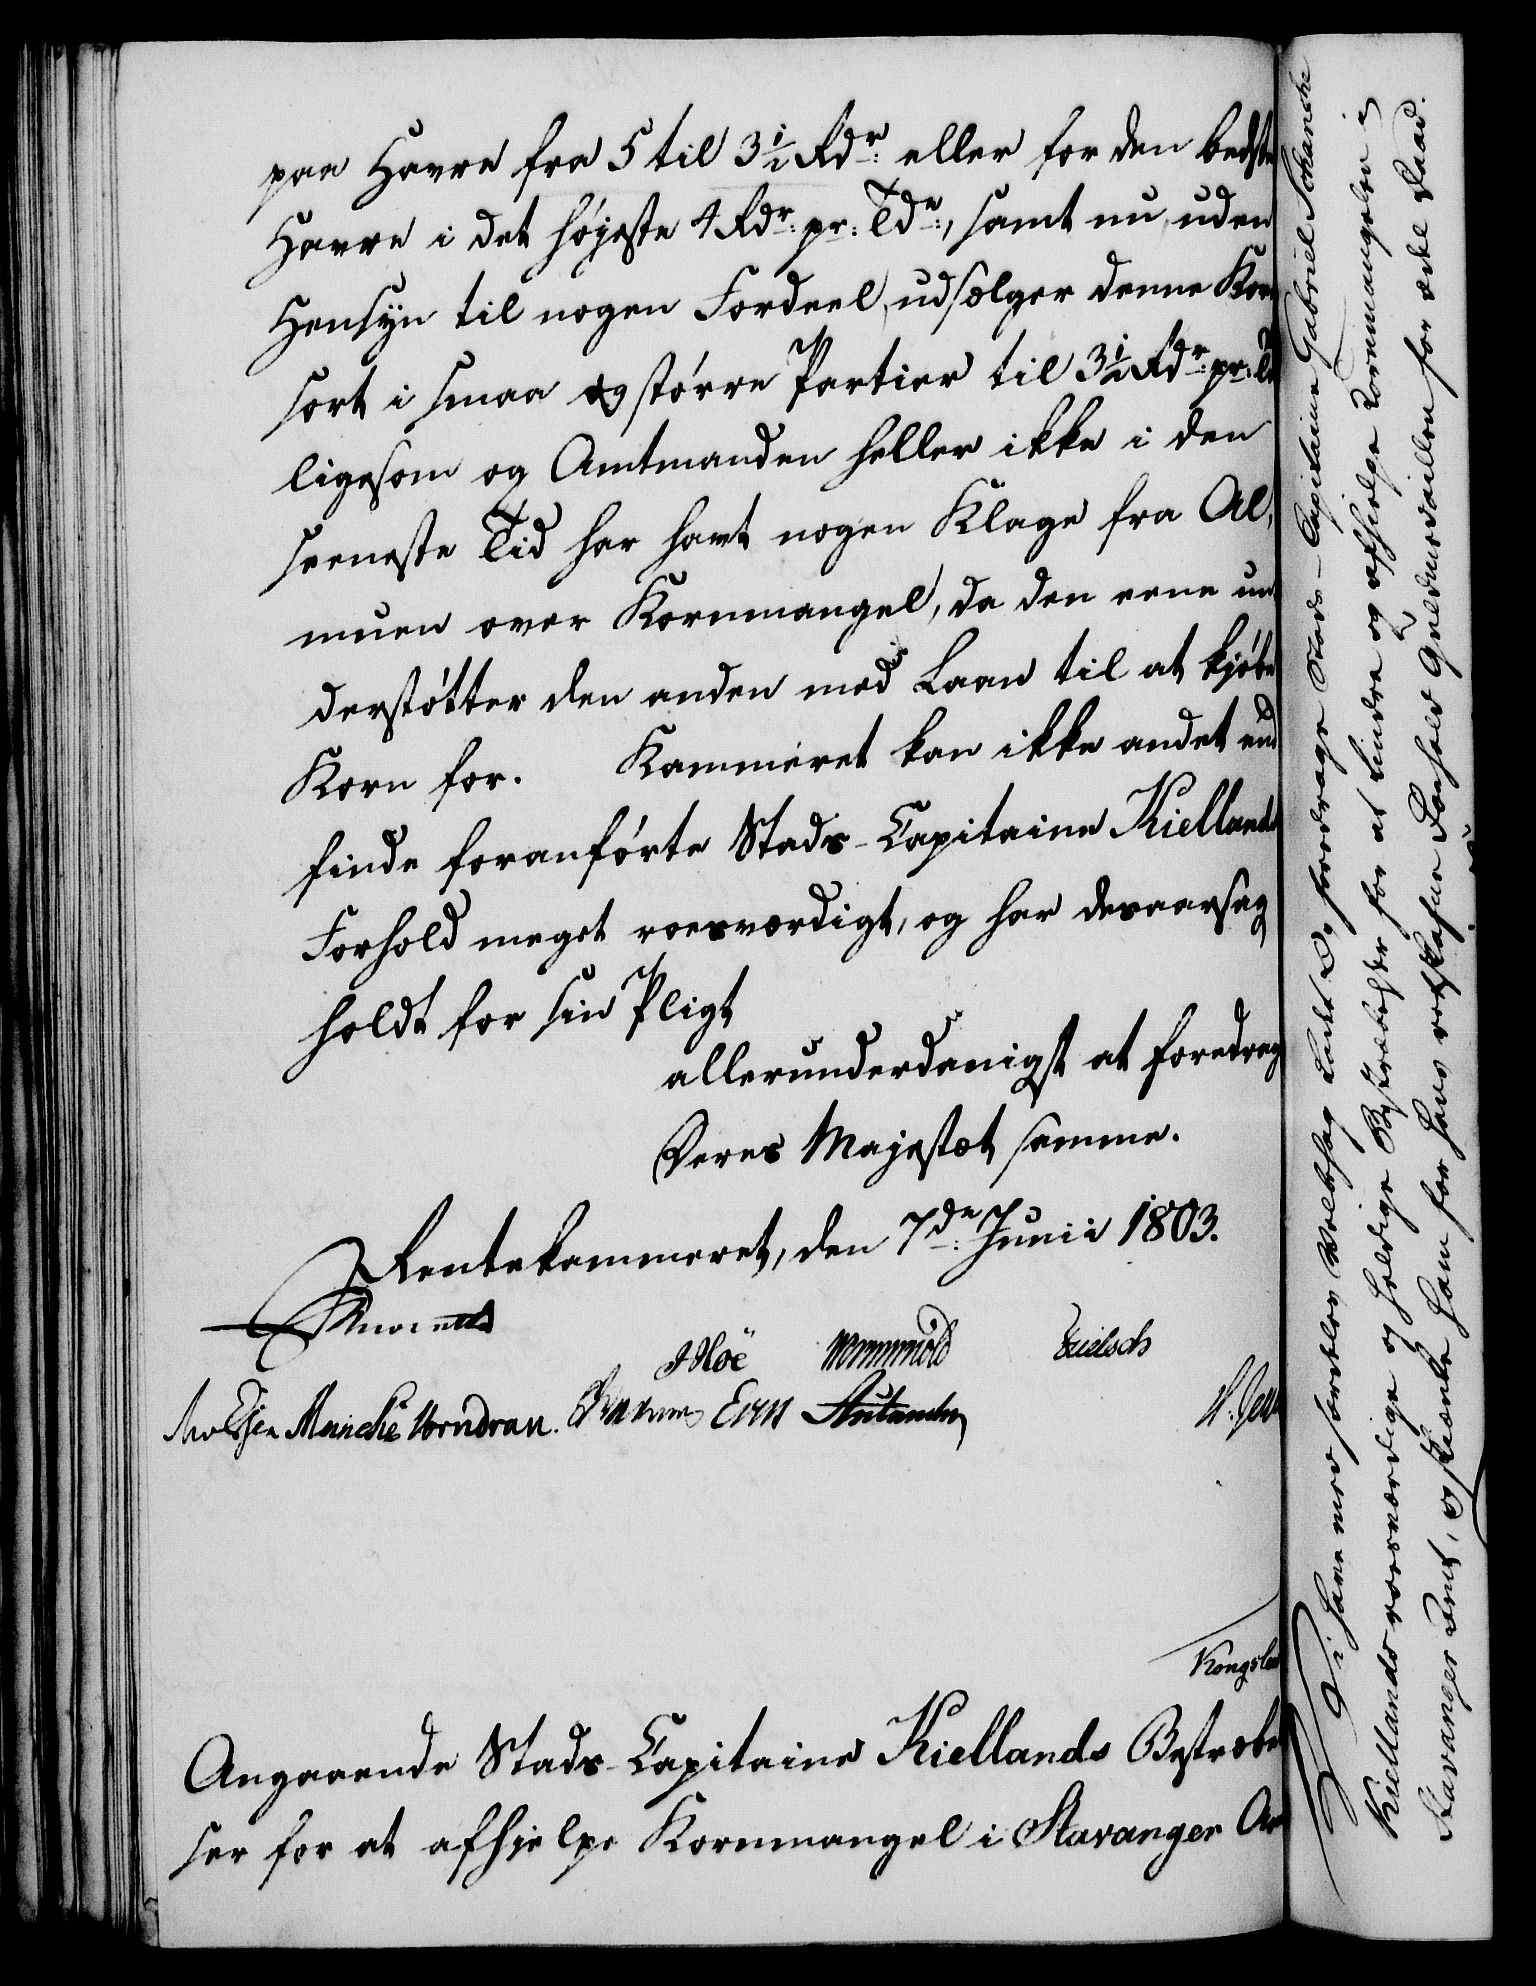 paa Havre fra 5 til 3½ Rdr: eller for den bedste
Havre i det højeste 4 Rdr: pr: Tdr:, samt nu uden
Hensÿn til nogen Fordeel, udsælger denne Korn
sort i smaa og større Partier til 3½ Rdr: pr: Td
ligesom og Amtmanden heller ikke i den
seeneste Tid har havt nogen Klage fra Al-
muen over Kornmangel, da den eene un-
derstøtter den anden med Laan til at kjøbe
Korn for. Kammeret kan ikke andet end
finde foranførte Stads-Capitaine Kiellands
Forhold meget roesværdigt, og har desaarsag
holdt for sin Pligt
allerunderdanigst at foredrag
Deres Majestæt samme.
Rentekammeret, den 7de: Junii 1803.
Hoë Wormskiold
Meincke Vorndran.
Kongslew
Angaaende Stads-Capitaine Kiellands Bestræbel
ser for at afhjelpe Kornmangel i Stavanger Am
Vi have med særdeles Velbehag ladet Os foredrage Stads-Capitaine Gabriel Schanche
Kiellands roesværdige og heldige Bestræbelser for at lindre og afhjelpe Kornmangelen i
Stavanger Amt, og skienke ham for hans Forhold Guldmedaillen for ædel Daad.